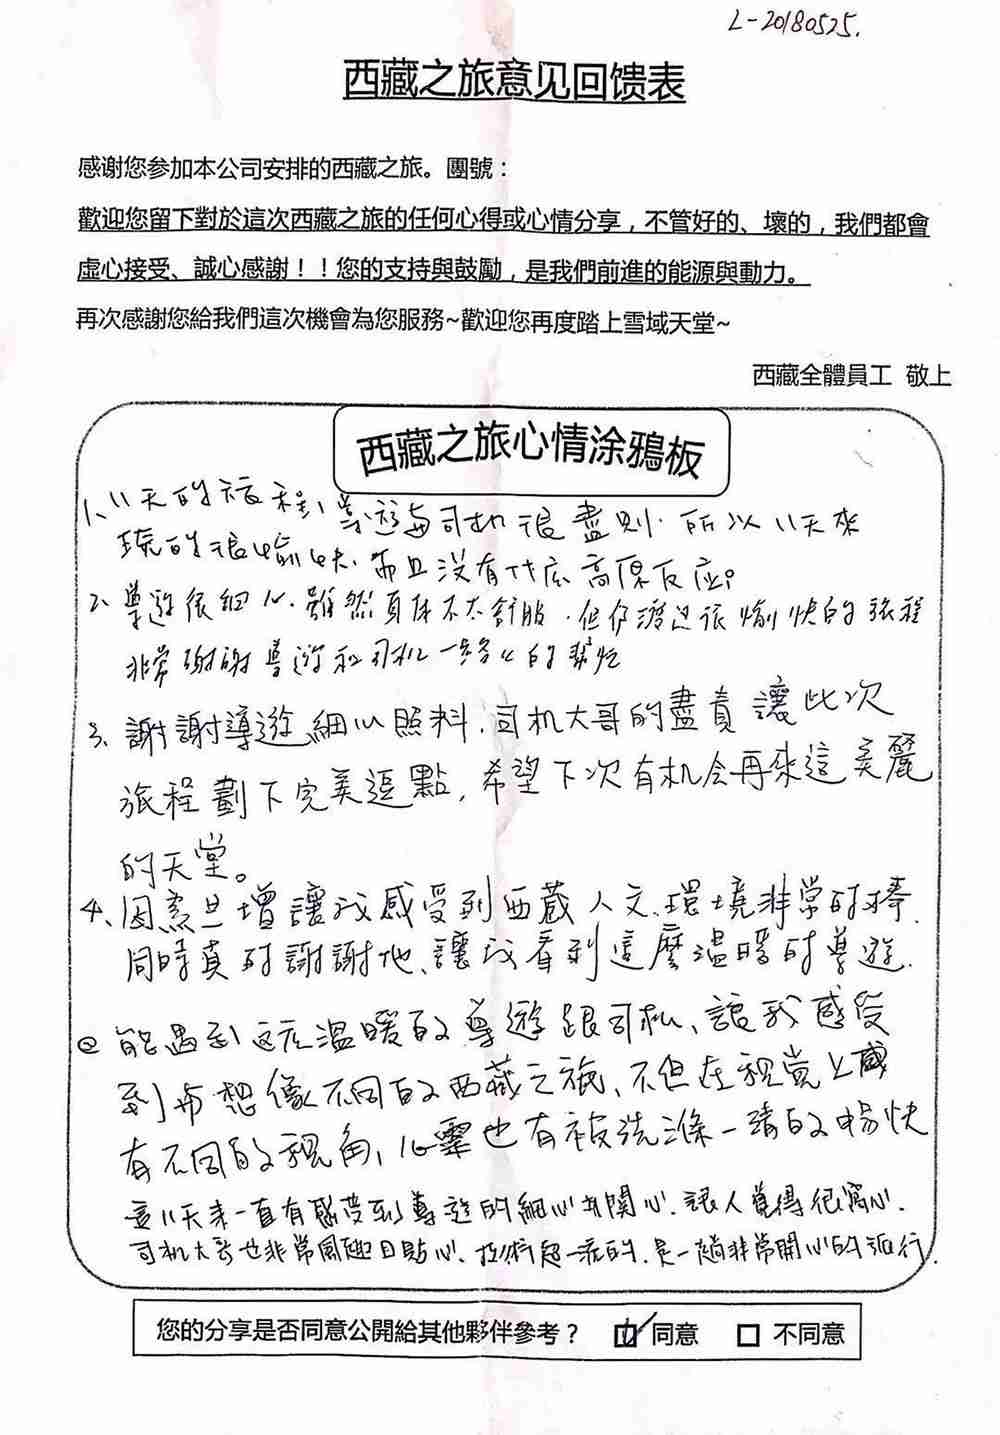 L-20180525.
西藏之旅意见回馈表
感谢您参加本公司安排的西藏之旅。團號：
歡迎您留下對於這次西藏之旅的任何心得或心情分享，不管好的、壞的，我們都會
虛心接受、誠心感謝！！您的支持與鼓勵，是我們前進的能源與動力。
再次感謝您給我們這次機會為您服務~歡迎您再度踏上雪域天堂~
西藏全體員工 敬上
西藏之旅心情涂鴉板
1、11天的旅程，導遊與司机很盡則．所以11天來
玩的很愉快．而且没有什広高原反应。
2、導遊很細心．雖然身体不太舒服．但仍渡过很愉快的旅程
非常謝謝導遊和司机一路上的幫忙
3、謝謝導遊細心照料．司机大哥的盡責讓此次
旅程劃下完美逗點，希望下次有机会再來這美麗
的天堂。
4、因為旦增讓我感受到西藏人文、環境非常的棒．
同時真的謝謝他、讓我看到這麼溫暖的導遊．
能遇到这広溫暖的導遊跟司机、讓我感受
到与想像不同的西藏之旅、不但在視覚上感
有不同的視角，心靈也有被洗滌一清的暢快
這11天来一直有感受到導遊的細心和関心．讓人覺得很窩心．
司机大哥也非常風趣且貼心．技術超一流的．是一趟非常開心的旅行．
您的分享是否同意公開給其他夥伴參考？ ☑ 同意 □ 不同意